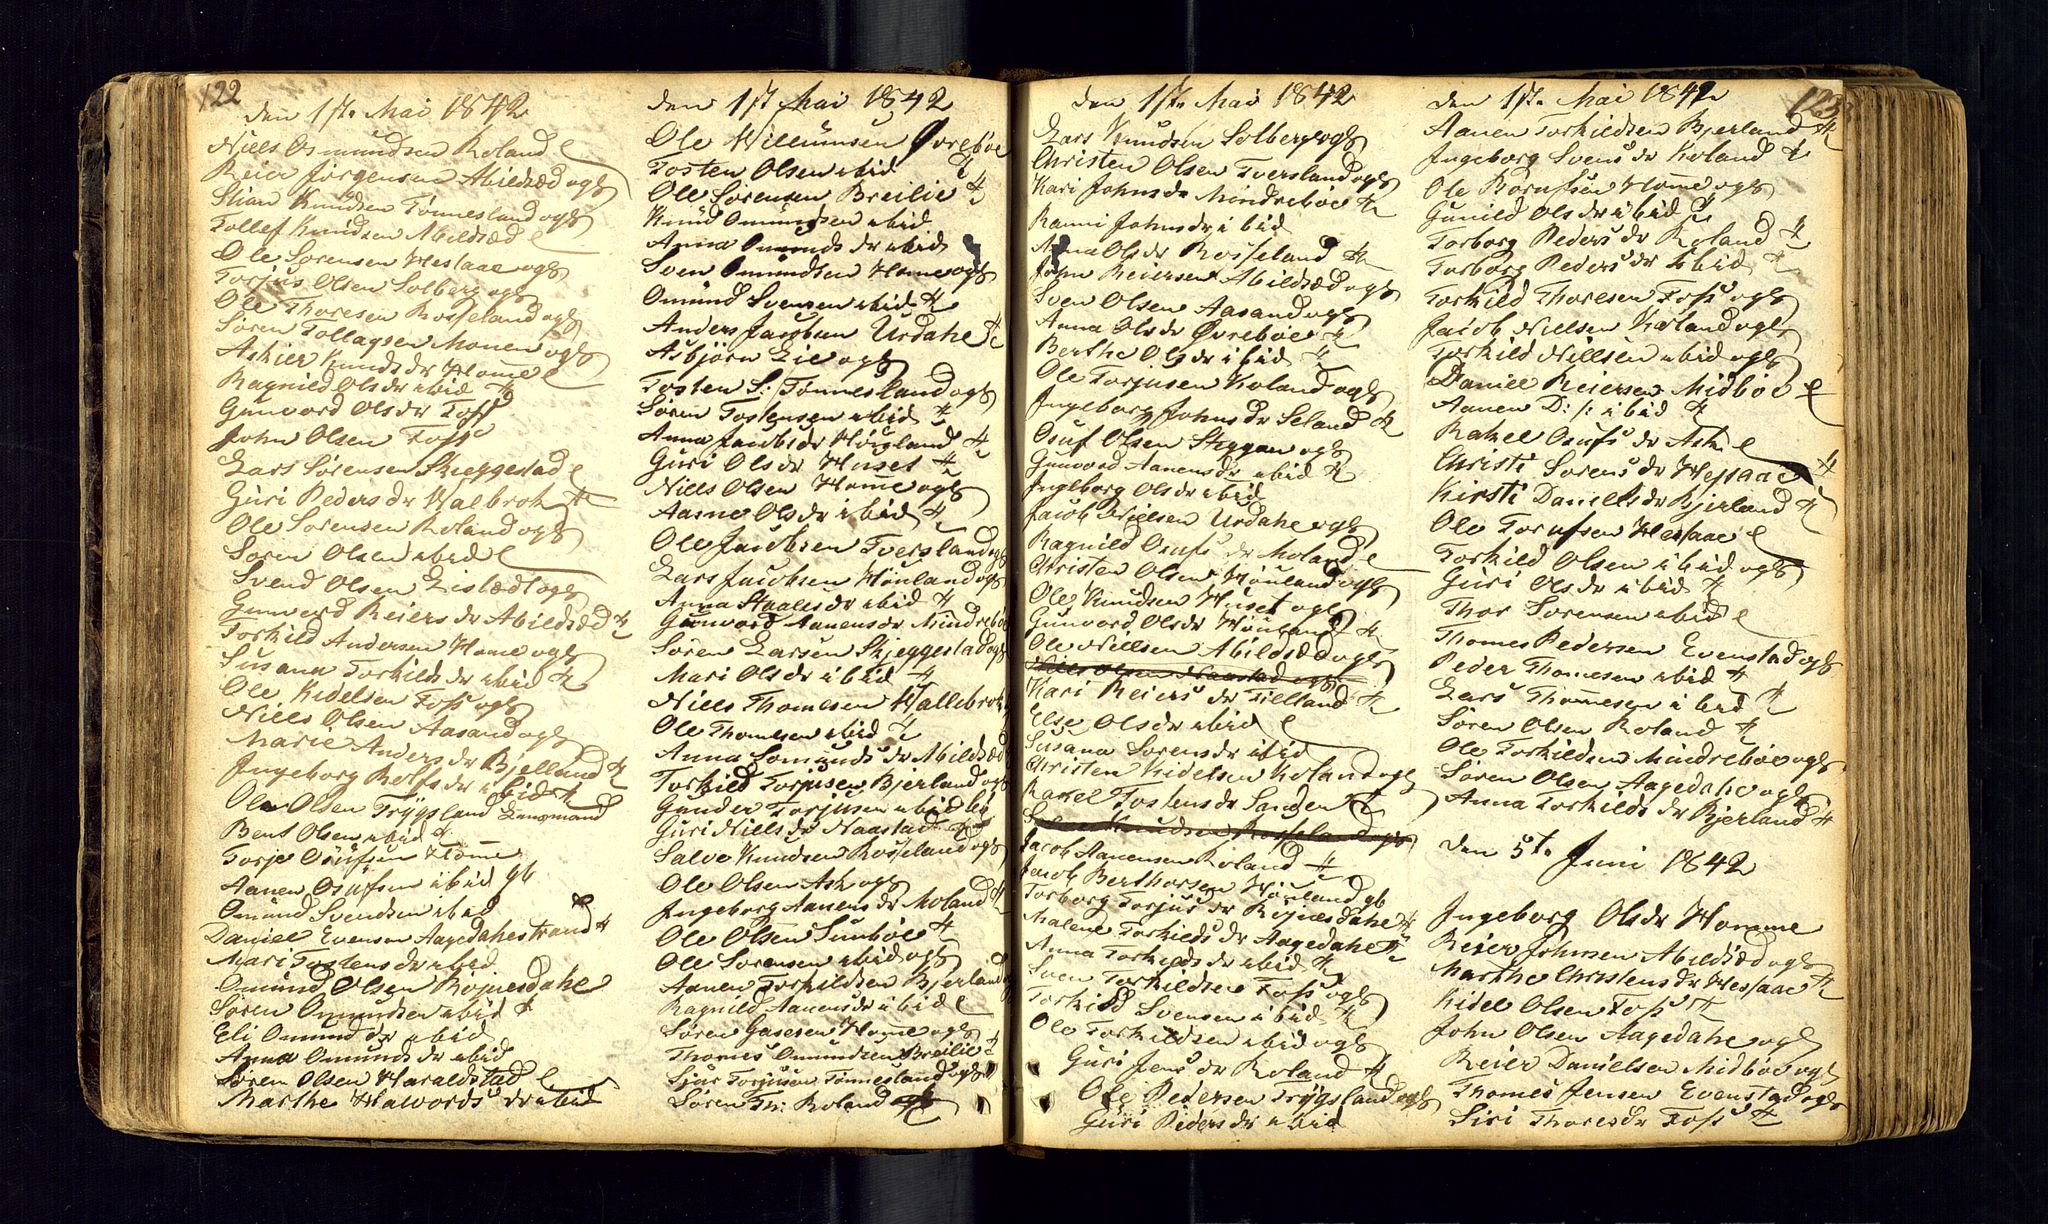 122
den 1ste Mai 1842
Niels Osmundsen Roland
Reier Jørgensen Abildsæd ogb
Stian Knudsen Tønnesland ogb
Tollef Knudsen Abildsæd
Ole Sørensen Hesaae ogb
Torjus Olsen Solberg ogb
Ole Thoresen Rosseland ogb
Søren Tollagsen Monen ogb
Knudsdr Home
Ragnild Olsdr ibid
Gunvord Olsdr Foss
John Olsen Foss
Lars Sørensen Skeggestad
Guri Pedersdr Halbrok
Ole Sørensen Roland ogb
Søren Olsen ibid
Svend Olsen ogb
Gunvord Reiersdr Abildsæd
Torkild Andersen Home ogb
Susana Torkildsdr ibid
Ole Kidelsen Foss ogb
Niels Olsen Aasand ogb
Marie Andersdr Bjelland
Ingeborg Rolfsdr ibid
Ole Olsen Trygsland Lensmand
Bent Olsen ibid
Torje Osufsen Home
Aanen Osufsen ibid gb
Omund Svendsen ibid
Daniel Evensen Aagedahlstrand
Mari Tostensdr ibid
Omund Olsen Røjnesdahl
Søren Omundsen ibid
Eli Omundsdr ibid
Anna Omundsdr ibid
Søren Olsen Haraldstad
Marthe Halvordsdr ibid
den 1st Mai 1842
Ole Willumsen Øvrebøe
Tosten Olsen ibid
Ole Sørensen Breilie
Knud Omundsen ibid
Anna Omundsdr ibid
Sven Omundsen Home ogb
Omund Svensen ibid
Anders Jacobsen Urdahl
Asbjørn Lie ogb
Tosten S: Tønnesland ogb
Søren Tostensen ibid
Anna Jacobsdr Høiland
Guri Olsdr Huset
Niels Olsen Home ogb
Aasne Olsdr ibid
Ole Jacobsen Tversland ogb
Lars Jacobsen Høuland ogb
Anna Staalesdr ibid
Gunvord Aanensdr Mindrebøe
Søren Larsen Skjeggestad ogb
Mari Olsdr ibid
Niels Thomesen Hallebrok
Ole Thomesen ibid
Anna Somundsdr Abildsæd
Torkild Torjusen Bjerland ogb
Gunder Torjusen ibid
Guri Nielsdr Naastad
Salve Knudsen Rosseland ogb
Ole Olsen Ask ogb
Ingeborg Aanensdr Moland
Ole Olsen Sunbøe
Ole Sørensen ibid ogb
Aanen Torkildsen Bjerland
Ragnild Aanensdr ibid
Søren Gasesen Home ogb
Thomes Omundsen Breilie
Sjur Torjusen Tønnesland ogb
Søren Th: Roland
den 1ste Mai 1842
Lars Knudsen Solberg ogb
Christen Olsen Tversland ogb
Kari Johnsdr Mindrebøe
Ranni Johnsdr ibid
Anna Olsdr Rosseland
John Reiersen Abildsæd ogb
Sven Olsen Aasand ogb
Anna Olsdr Øvrebøe
Berthe Olsdr ibid
Ole Torjusen Roland ogb
Ingeborg Johnsdr Seland
Osuf Olsen Skeggan ogb
Gunvord Aanensdr ibid
Ingeborg Olsdr ibid
Jacob Nielsen Urdahl ogb
Ragnild Osufsdr Moland
Christen Olsen Høuland ogb
Ole Knudsen Huset ogb
Gunvord Olsdr Høuland
Ole Nielsen Abildsæd ogb
Niels Olsen Naastad ogb
Kari Reiersdr Fielland
Else Olsdr ibid
Susana Sørensdr ibid
Christen Kidelsen Roland ogb
Rakel Tostensdr Sanden
Salve Knudsen Rosseland ogb
Jacob Aanensen Roland
Jacob Berthorsen Høuland gb
Torborg Torjusdr Røjnesdahl
Malene Torkildsdr Aagedahl
Anna Torkildsdr ibid
Sven Torkildsen Foss ogb
Torkild Svensen ibid
Ole Torkildsen ibid ogb
Guri Jensdr Roland
Ole Pedersen Trygsland ogb
Guri Pedersdr ibid
123
den 1ste Mai 1842
Aanen Torkildsen Bjerland
Ingeborg Svensdr Roland
Ole Home ogb
Gunild Olsdr ibid
Torborg Pedersdr Roland
Torborg Pedersdr ibid
Torkild Thoresen Foss ogb
Jacob Nielsen Roland ogb
Torkild Nielsen ibid ogb
Daniel Reiersen Midbøe
Aanen D:/: ibid
Rakel Osufsdr Ask
Christi Sørensdr Hessaae
Kirsti Danielsdr Bjerland
Ole Hessaae
Torkild Olsen ibid ogb
Guri Olsdr ibid
Thor Sørensen ibid
Thomes Pedersen Evenstad ogb
Peder Thomesen ibid
Lars Thomesen ibid
Søren Olsen Roland
Ole Torkildsen Mindrebøe ogb
Søren Olsen Aagedahl ogb
Anna Torkildsdr Bjerland
den 5te Juni 1842
Ingeborg Olsdr Homme
Reier Johnsen Abildsæd ogb
Marthe Christensdr Hessaae
Kidel Olsen Foss
John Olsen Aagedahl ogb
Reier Danielsen Midbøe ogb
Thomes Jensen Evenstad ogb
Siri Thoresdr Foss